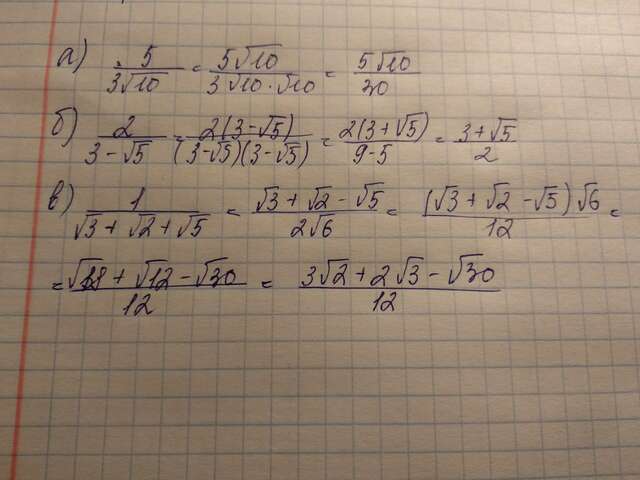 а) 5/(3√10) = 5√10/(3√10·√10) = 5√10/30
б) 2/(3-√5) = 2(3-√5)/((3-√5)(3-√5)) = 2(3+√5)/(9-5) = (3+√5)/2
в) 1/(√3+√2+√5) = (√3+√2-√5)/(2√6) = (√3+√2-√5)√6/12 =
= (√18+√12-√30)/12 = (3√2+2√3-√30)/12